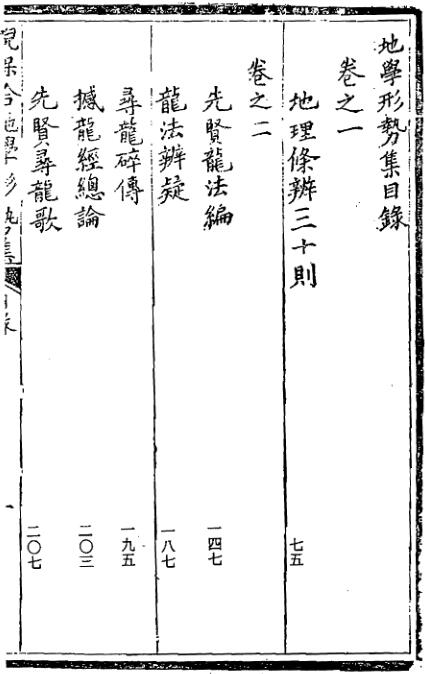 地學形勢集目錄
卷之一
地理條辨三十則 七五
卷之二
先賢龍法編 一四七
龍法辨疑 一八七
尋龍碎傳 一九五
撼龍經總論 二〇三
先賢尋龍歌 二〇七
地學形勢集 目錄
一